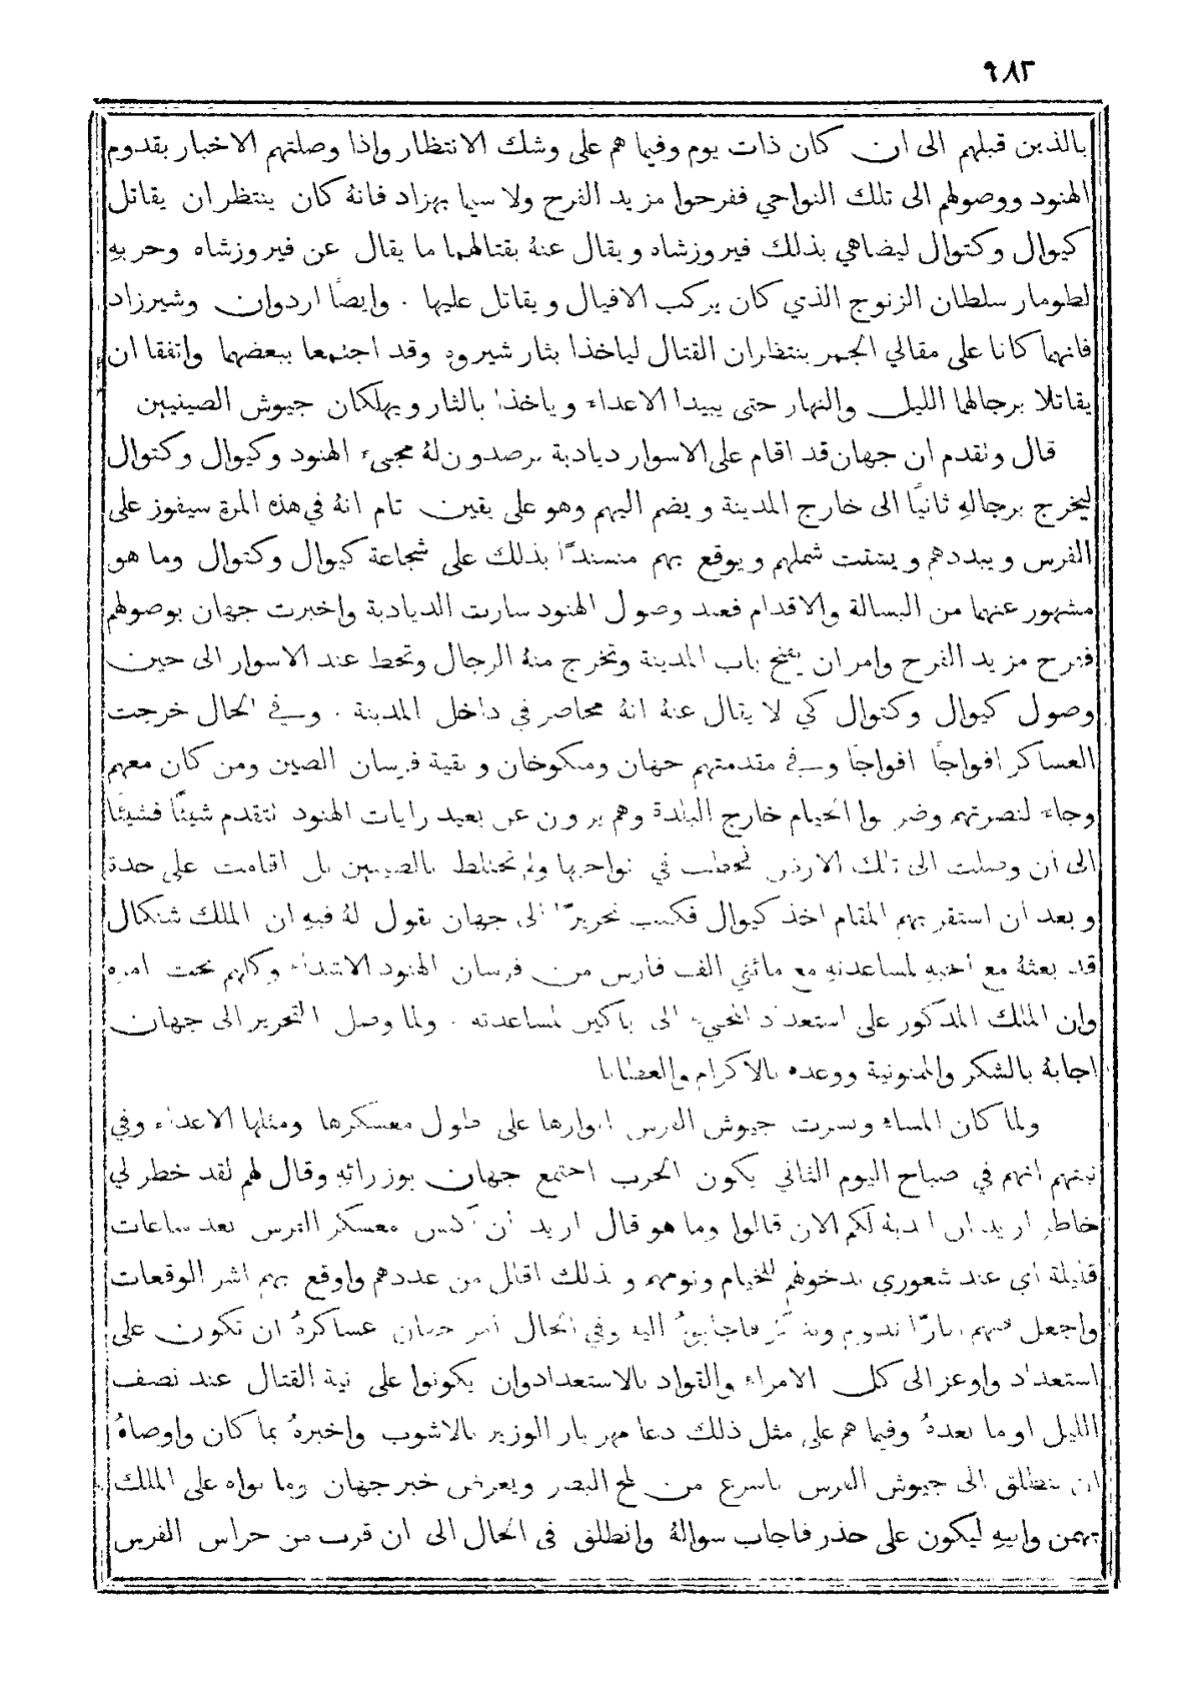 ٩٨٣
بالذين قبلهم الى ان كان ذات يوم وفيما هم على وشك الانتظار واذا وصلتهم الاخبار بقدوم
الهنود ووصولهم الى تلك النواحي ففرحوا مزيد الفرح ولا سيما بهزاد فانهُ كان ينتظر ان يقاتل
كيوال وكتوال ليضاهي بذلك فيروزشاه ويقال عنهُ بقتالهما ما يقال عن فيروزشاه وحربهِ
لطومار سلطان الزنوج الذي كان يركب الافيال ويقاتل عليها . وايضًا اردوان وشيرزاد
فانهما كانا على مقالي الجمر ينتظران القتال لياخذا بثار شيروه وقد اجتمعا ببعضهما واتفقا ان
يقاتلا برجالهما الليل والنهار حتى يبيدا الاعداء وياخذا بالثار ويهلكان جيوش الصينيين
قال وتقدم ان جهان قد اقام على الاسوار ديادبة يرصدون لهُ مجيء الهنود وكيوال وكتوال
ليخرج برجالهِ ثانيًا الى خارج المدينة ويضم اليهم وهو على يقين تام انهُ في هذه المرة سيفوز على
الفرس ويبددهم ويشتت شملهم ويوقع بهم مستندًا بذلك على شجاعة كيوال وكتوال وما هو
مشهور عنهما من البسالة والاقدام فعند وصول الهنود سارت الديادبة واخبرت جهان بوصولهم
ففرح مزيد الفرح وامر ان يفتح باب المدينة وتخرج منهُ الرجال وتحط عند الاسوار الى حين
وصول كيوال وكتوال كي لا يقال عنهُ انهُ محاصر في داخل المدينة . وفي الحال خرجت
العساكر افواجًا افواجًا وفي مقدمتهم جهان ومنكوخان وبقية فرسان الصين ومن كان معهم
وجاء لنصرتهم وضربوا الخيام خارج البلدة وهم يرون عن بعيد رايات الهنود تتقدم شيئًا فشيئًا
الى ان وصلت الى تلك الارض فحطت في نواحيها ولم تختلط بالصينيين بل اقامت على حدة
وبعد ان استقر بهم المقام اخذ كيوال فكتب تحريرًا الى جهان يقول لهُ فيهِ ان الملك شنكال
قد بعثهُ مع اخيهِ لمساعدتهِ مع مائتي الف فارس من فرسان الهنود الاشداء وكلهم تحت امره
وان الملك المذكور على استعداد المجيء الى باكير لمساعدته . ولما وصل التحرير الى جهان
اجابهُ بالشكر والممنونية ووعده بالاكرام والعطايا
ولما كان المساء ونشرت جيوش الفرس انوارها على طول معسكرها ومثلها الاعداء وفي
نيتهم انهم في صباح اليوم الثاني يكون الحرب اجتمع جهان بوزرائهِ وقال لهم لقد خطر لي
خاطر اريد ان ابديهُ لكم الان قالوا وما هو قال اريد ان اكبس معسكر الفرس بعد ساعات
قليلة اي عند شعوري بدخولهم للخيام ونومهم وبذلك اقلل من عددهم واوقع بهم اشر الوقعات
واجعل فيهم نارًا تدوم فاجابوهُ اليه وفي الحال امر جهان عساكرهُ ان تكون على
استعداد واوعز الى كل الامراء والقواد بالاستعداد وان يكونوا على نية القتال عند نصف
الليل او ما بعدهُ وفيما هم على مثل ذلك دعا مهريار الوزير بالاشوب واخبرهُ بما كان واوصاهُ
ان ينطلق الى جيوش الفرس باسرع من لمح البصر ويعرض خبر جهان وما نواه على الملك
بهمن وابيهِ ليكون على حذر فاجاب سوالهُ وانطلق في الحال الى ان قرب من حراس الفرس